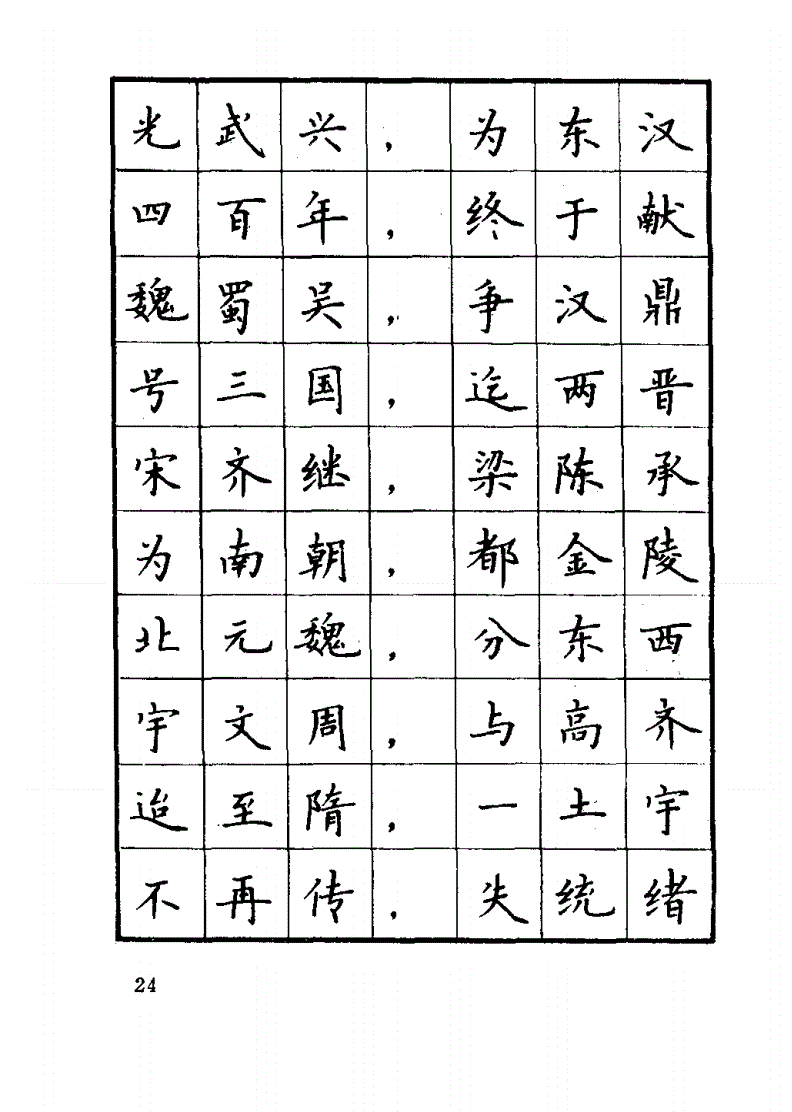 光武兴，为东汉
四百年，终于献
魏蜀吴，争汉鼎
号三国，迄两晋
宋齐继，梁陈承
为南朝，都金陵
北元魏，分东西
宇文周，与高齐
迨至隋，一土宇
不再传，失统绪
24